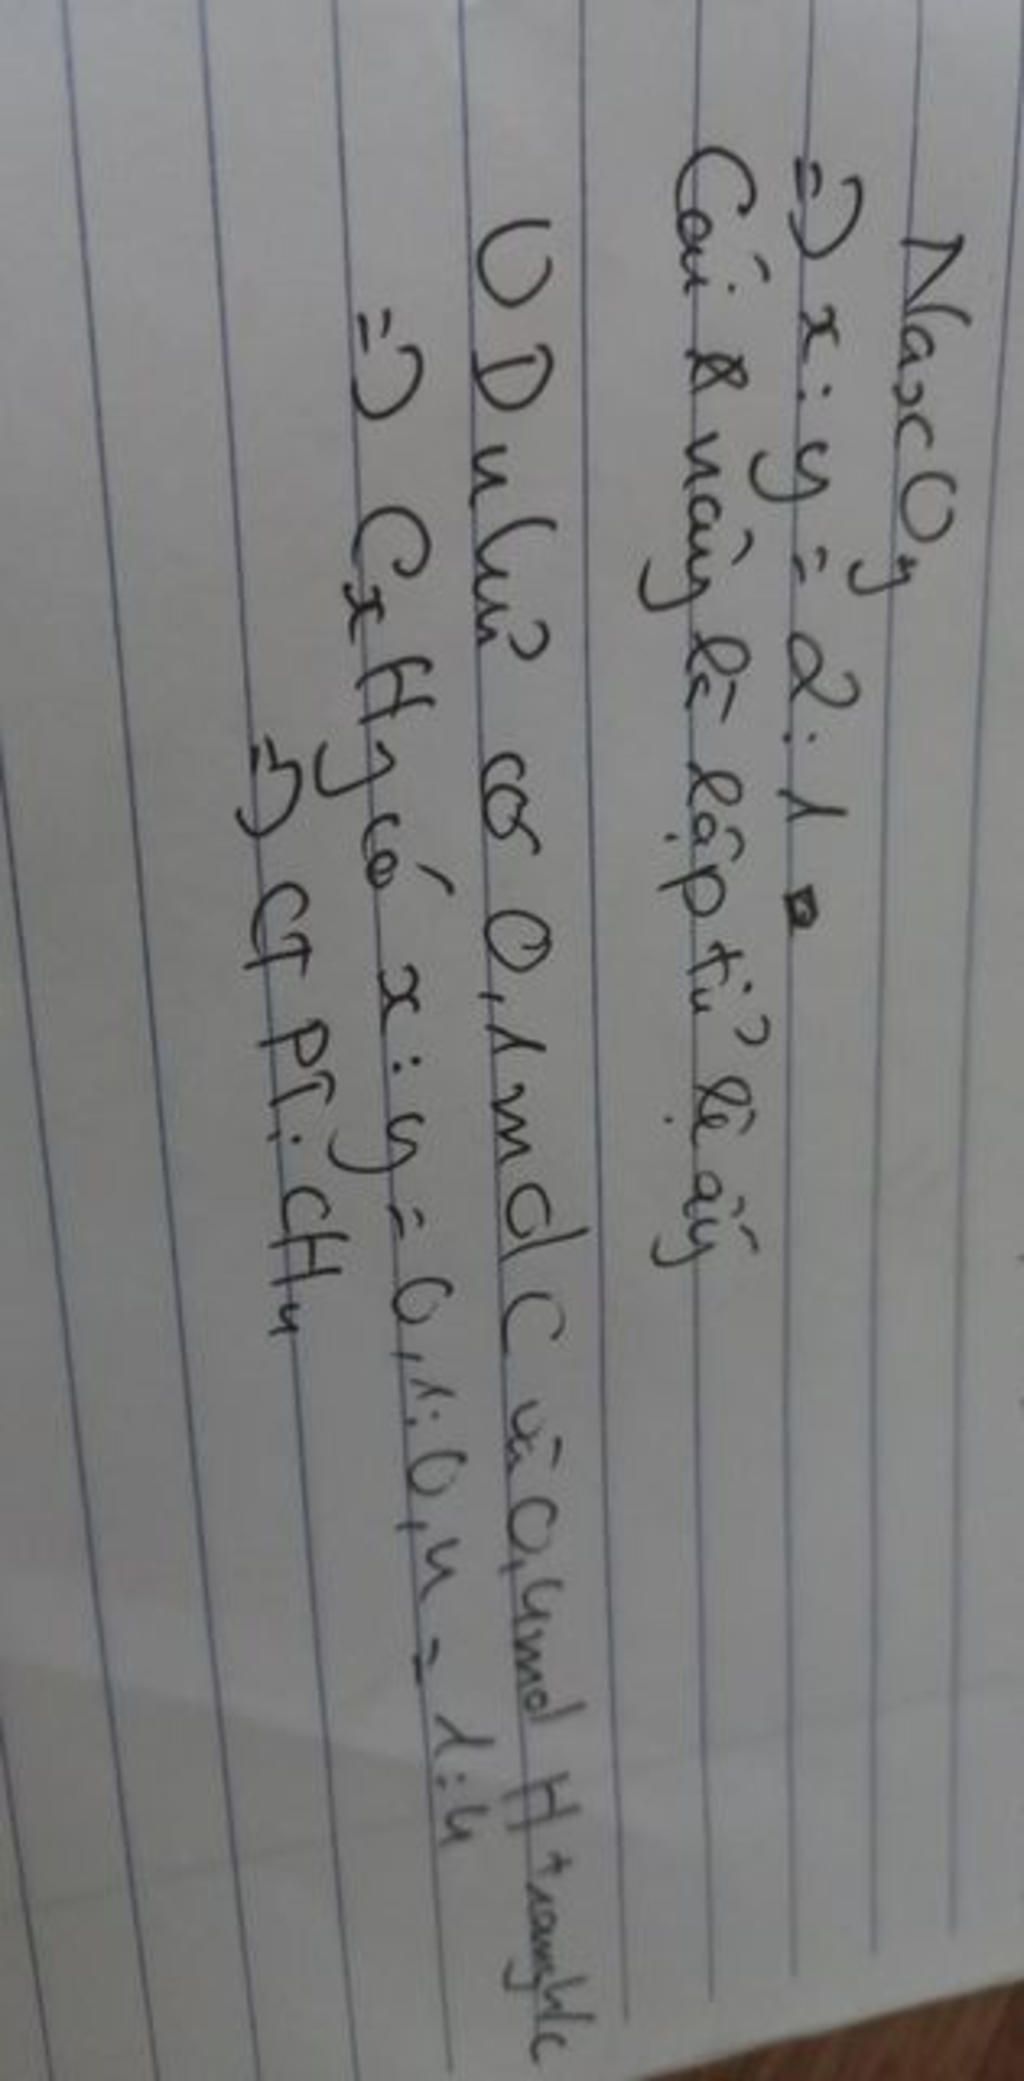 NaxOy
=> x : y = 2 : 1
Cái này là lập tỉ lệ ấy
VD như có 0,1 mol C và 0,4 mol H trong h/c
=> CxHy có x : y = 0,1 : 0,4 = 1 : 4
=> CTPT: CH4